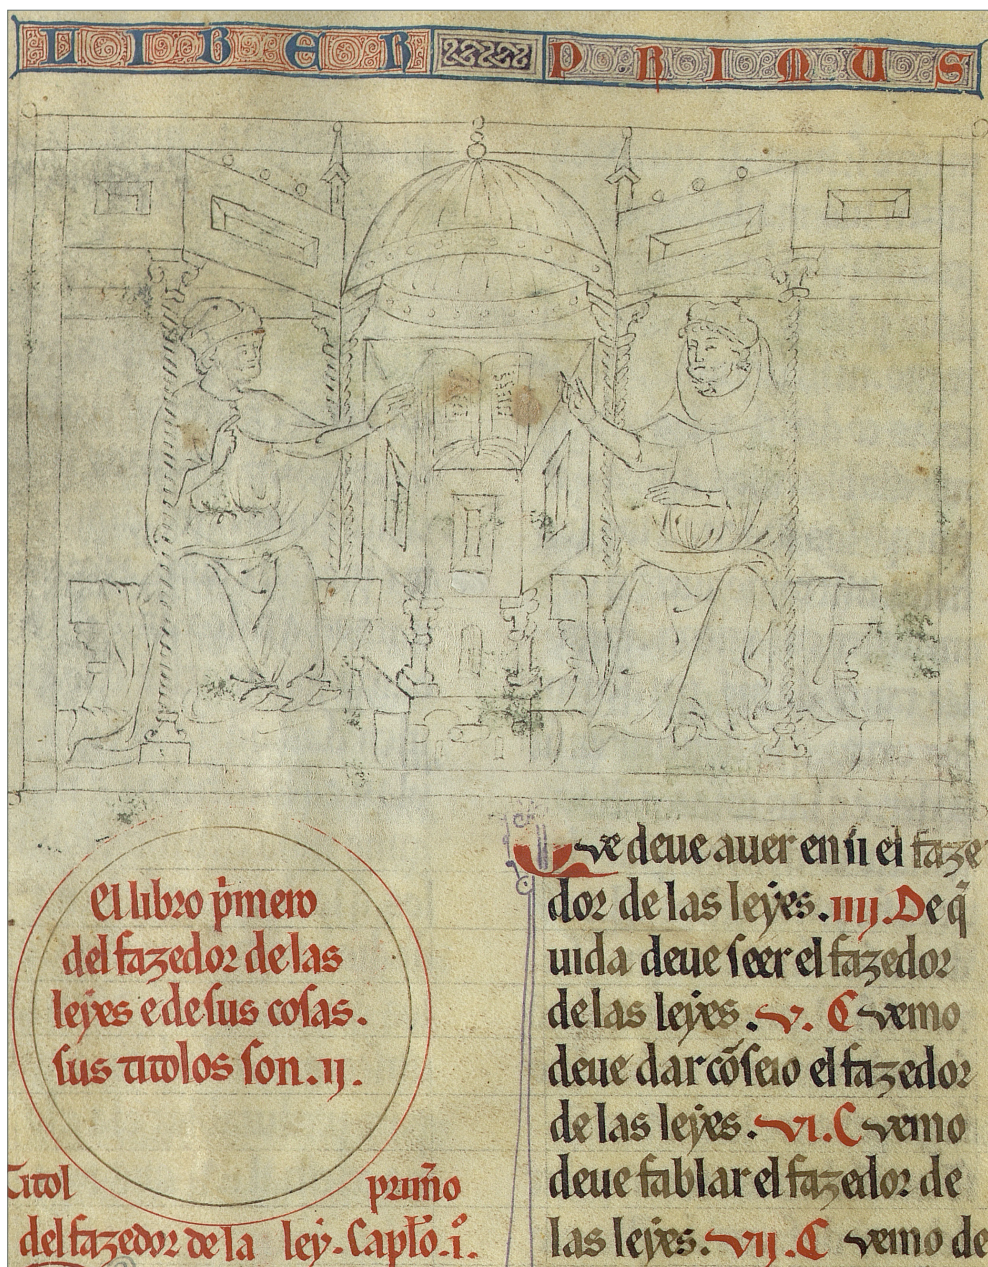 LIBER PRIMUS
El libro p̄mero
del fazedor de las
leyes e de sus cosas.
sus titolos son .ij.
Titol primo
del fazedor de la ley. Caplo. i.
Que deue auer en si el faze
dor de las leyes. iiij. De q̄
uida deue seer el fazedor
de las leyes. v. Cuemo
deue dar cōseio el fazedor
de las leyes. vi. Cuemo
deue fablar el fazedor de
las leyes. vij. Cuemo de